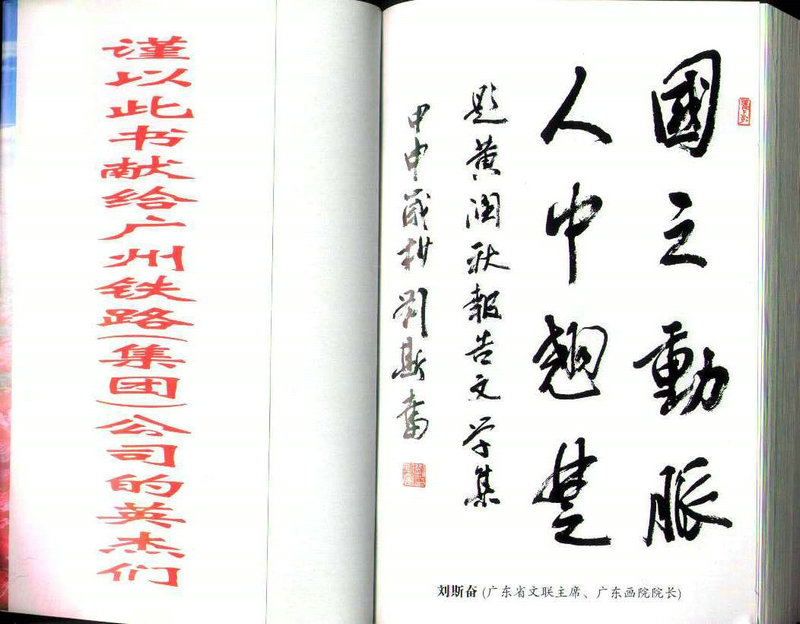 谨以此书献给广州铁路(集团)公司的英杰们
國之動脈
人中翹楚
题黄润秋報告文学集
甲申歲杪劉斯奮
刘斯奋(广东省文联主席、广东画院院长)